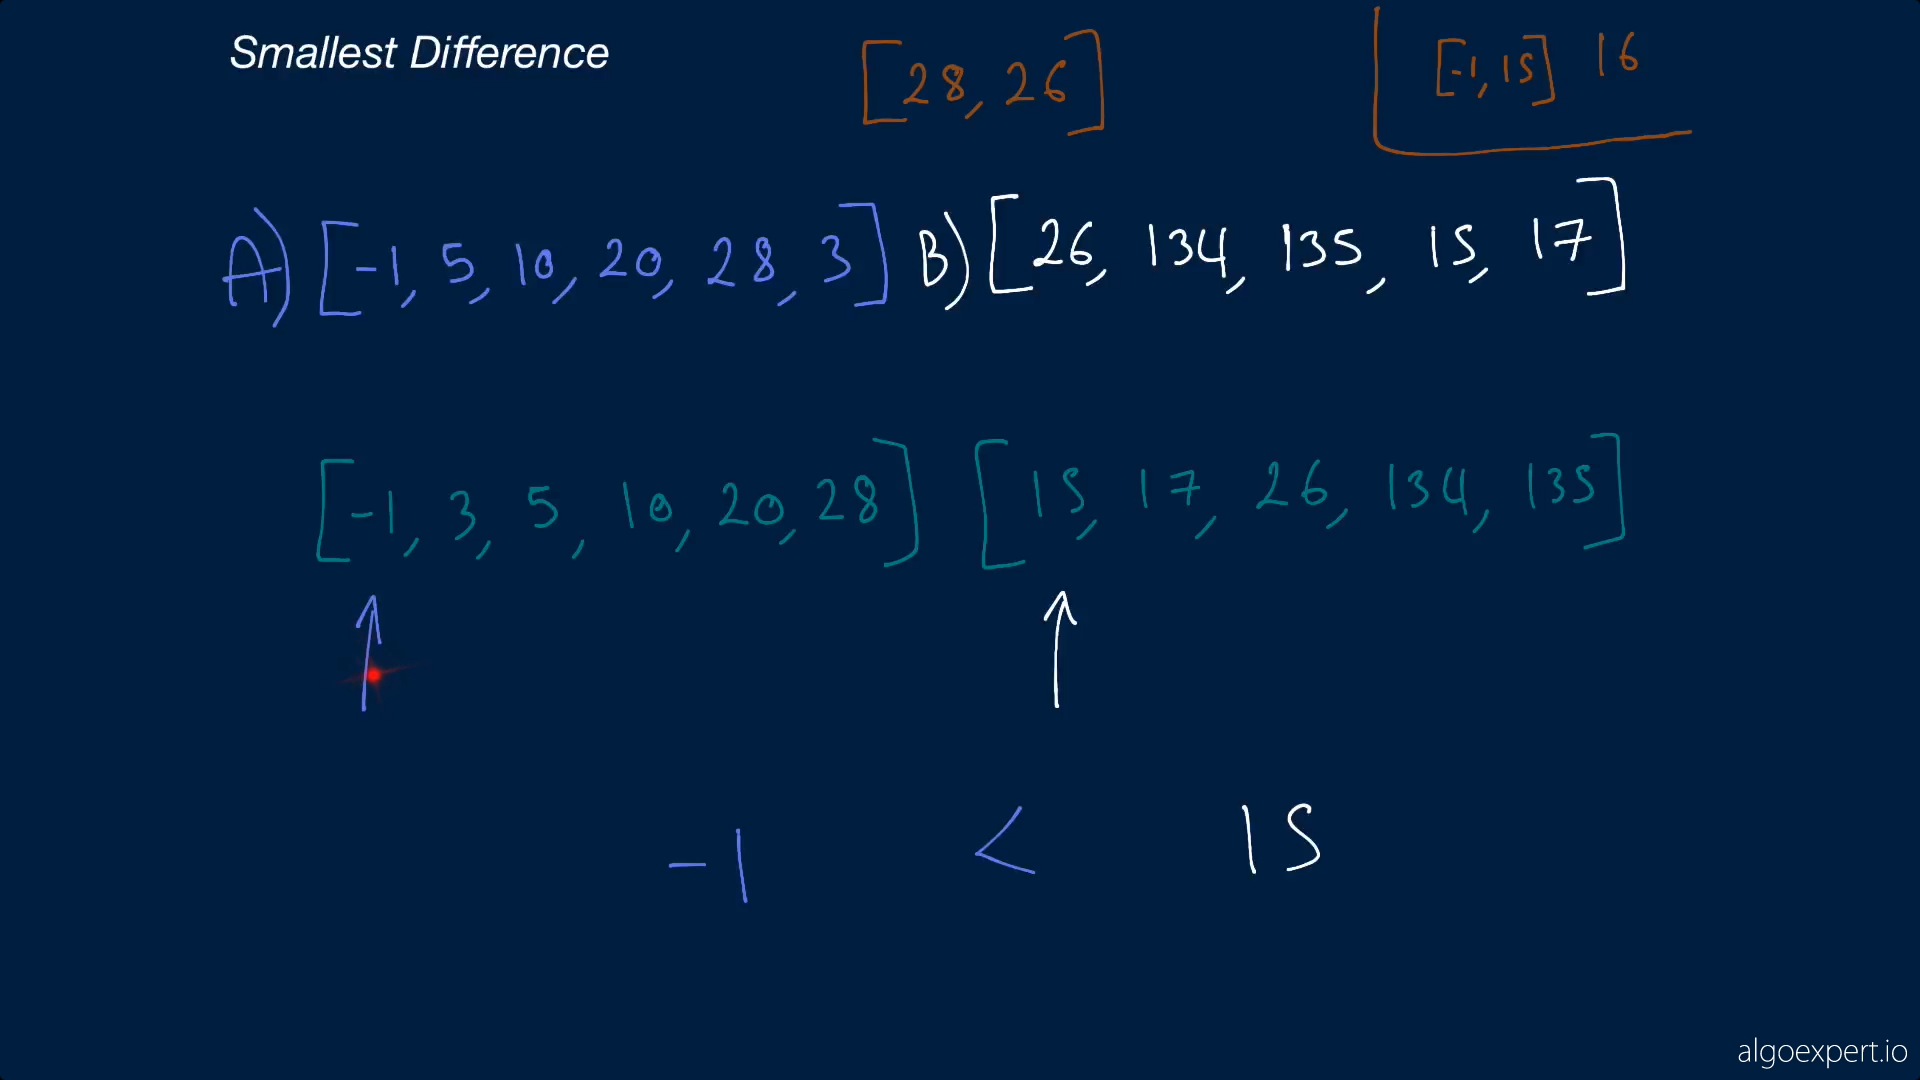 Smallest Difference [28, 26] [-1, 15] 16
A) [-1, 5, 10, 20, 28, 3] B) [26, 134, 135, 15, 17]
[-1, 3, 5, 10, 20, 28] [15, 17, 26, 134, 135]
-1 < 15
algoexpert.io